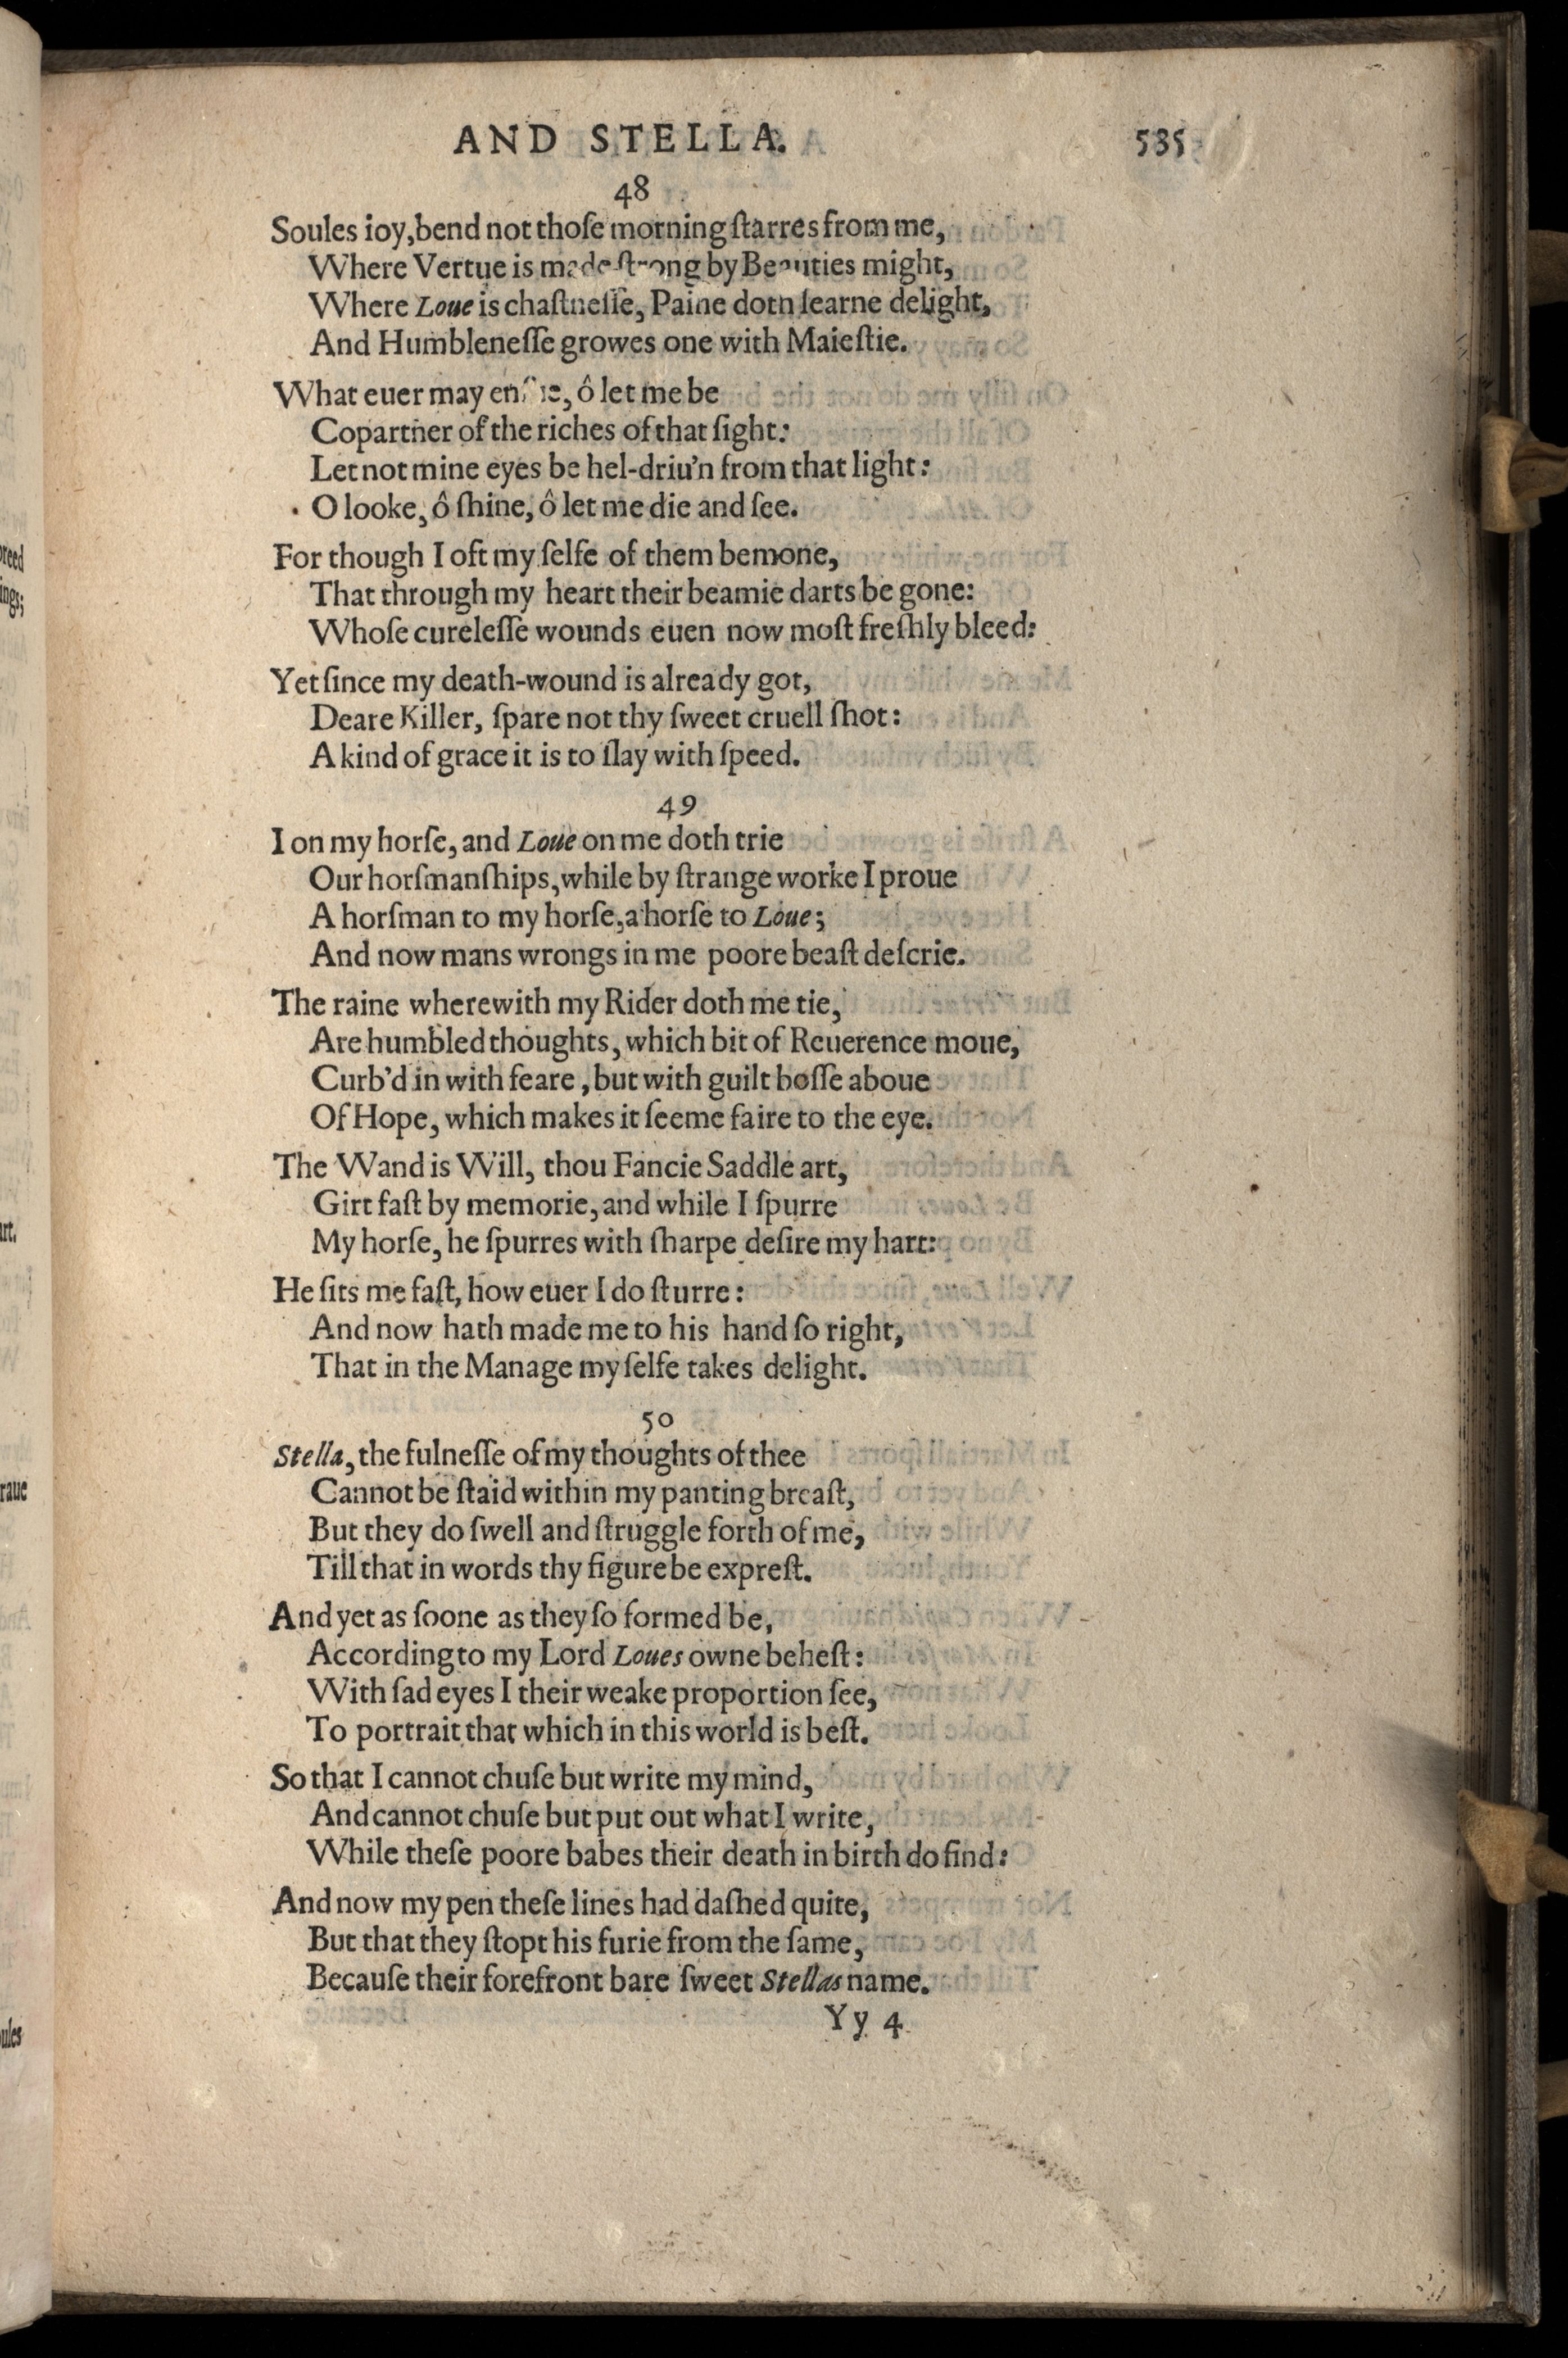 AND STELLA. 535
48
Soules ioy, bend not thoſe morning ſtarres from me,
Where Vertue is made ſtrong by Beauties might,
Where Loue is chaſtneſſe, Paine doth learne delight,
And Humbleneſſe growes one with Maieſtie.
What euer may enſue, ô let me be
Copartner of the riches of that ſight:
Let not mine eyes be hel-driu'n from that light:
O looke, ô ſhine, ô let me die and ſee.
For though I oft my ſelfe of them bemone,
That through my heart their beamie darts be gone:
Whoſe cureleſſe wounds euen now moſt freſhly bleed:
Yet ſince my death-wound is already got,
Deare Killer, ſpare not thy ſweet cruell ſhot:
A kind of grace it is to ſlay with ſpeed.
49
I on my horſe, and Loue on me doth trie
Our horſmanſhips, while by ſtrange worke I proue
A horſman to my horſe, a horſe to Loue;
And now mans wrongs in me poore beaſt deſcrie.
The raine wherewith my Rider doth me tie,
Are humbled thoughts, which bit of Reuerence moue,
Curb'd in with feare, but with guilt boſſe aboue
Of Hope, which makes it ſeeme faire to the eye.
The Wand is Will, thou Fancie Saddle art,
Girt faſt by memorie, and while I ſpurre
My horſe, he ſpurres with ſharpe deſire my hart:
He ſits me faſt, how euer I do ſturre:
And now hath made me to his hand ſo right,
That in the Manage my ſelfe takes delight.
50
Stella, the fulneſſe of my thoughts of thee
Cannot be ſtaid within my panting breaſt,
But they do ſwell and ſtruggle forth of me,
Till that in words thy figure be expreſt.
And yet as ſoone as they ſo formed be,
According to my Lord Loues owne beheſt:
With ſad eyes I their weake proportion ſee,
To portrait that which in this world is beſt.
So that I cannot chuſe but write my mind,
And cannot chuſe but put out what I write,
While theſe poore babes their death in birth do find:
And now my pen theſe lines had daſhed quite,
But that they ſtopt his furie from the ſame,
Becauſe their forefront bare ſweet Stellas name.
Yy 4